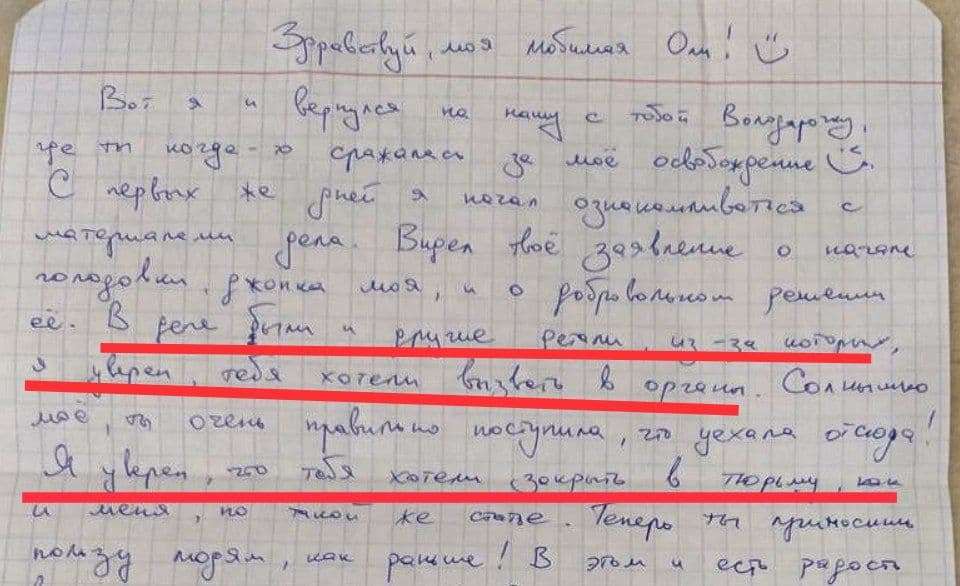 Здравствуй, моя любимая Оли! :)
Вот я и вернулся на нашу с тобой Володарочку,
где ты когда-то сражалась за моё освобождение :).
С первых же дней я начал ознакамливаться с
материалами дела. Видел твоё заявление о начале
голодовки, джопка моя, и о добровольном решении
её. В деле были и другие детали, из-за которых,
я уверен, тебя хотели вызвать в органы. Солнышко
моё, ты очень правильно поступила, что уехала отсюда!
Я уверен, что тебя хотели закрыть в тюрьму, как
и меня, по такой же статье. Теперь ты приносишь
пользу людям, как раньше! В этом и есть радость